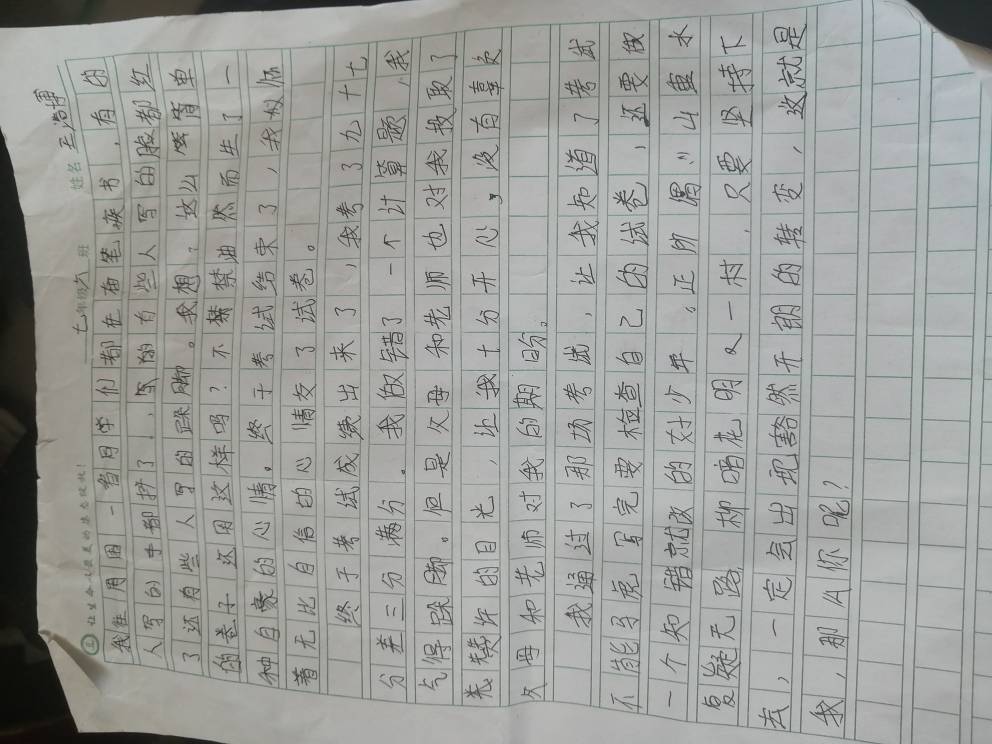 让生命发展的课堂绽放！
七年级六班 姓名 王浩博
我往周围一看同学们都在奋笔疾书，有的
人写的手都抖了，写的有些人写的脸都红
了还有些人写的跺脚。我想，这么简单
的卷子还用这样吗？不禁油然而生了一
种自豪的心情。终于考试结束了，我
着无比自信的心情交了试卷。
终于考试成绩出来了，我考了九十七
分差三分满分。我做错了一个计算题，我
气得跺脚。但是父母和老师也对我投取了
赞许的目光，让我十分开心，没有辜负
父母和老师对我的期盼。
我通过了那场考试，让我知道了考试
不能马虎写完要检查自己的试卷，还要做
一个知错就改的好少年。正所谓“山重水
复疑无路，柳暗花明又一村，只要坚持下
去，一定会出现豁然开朗的转变，这就是
我，那你呢？